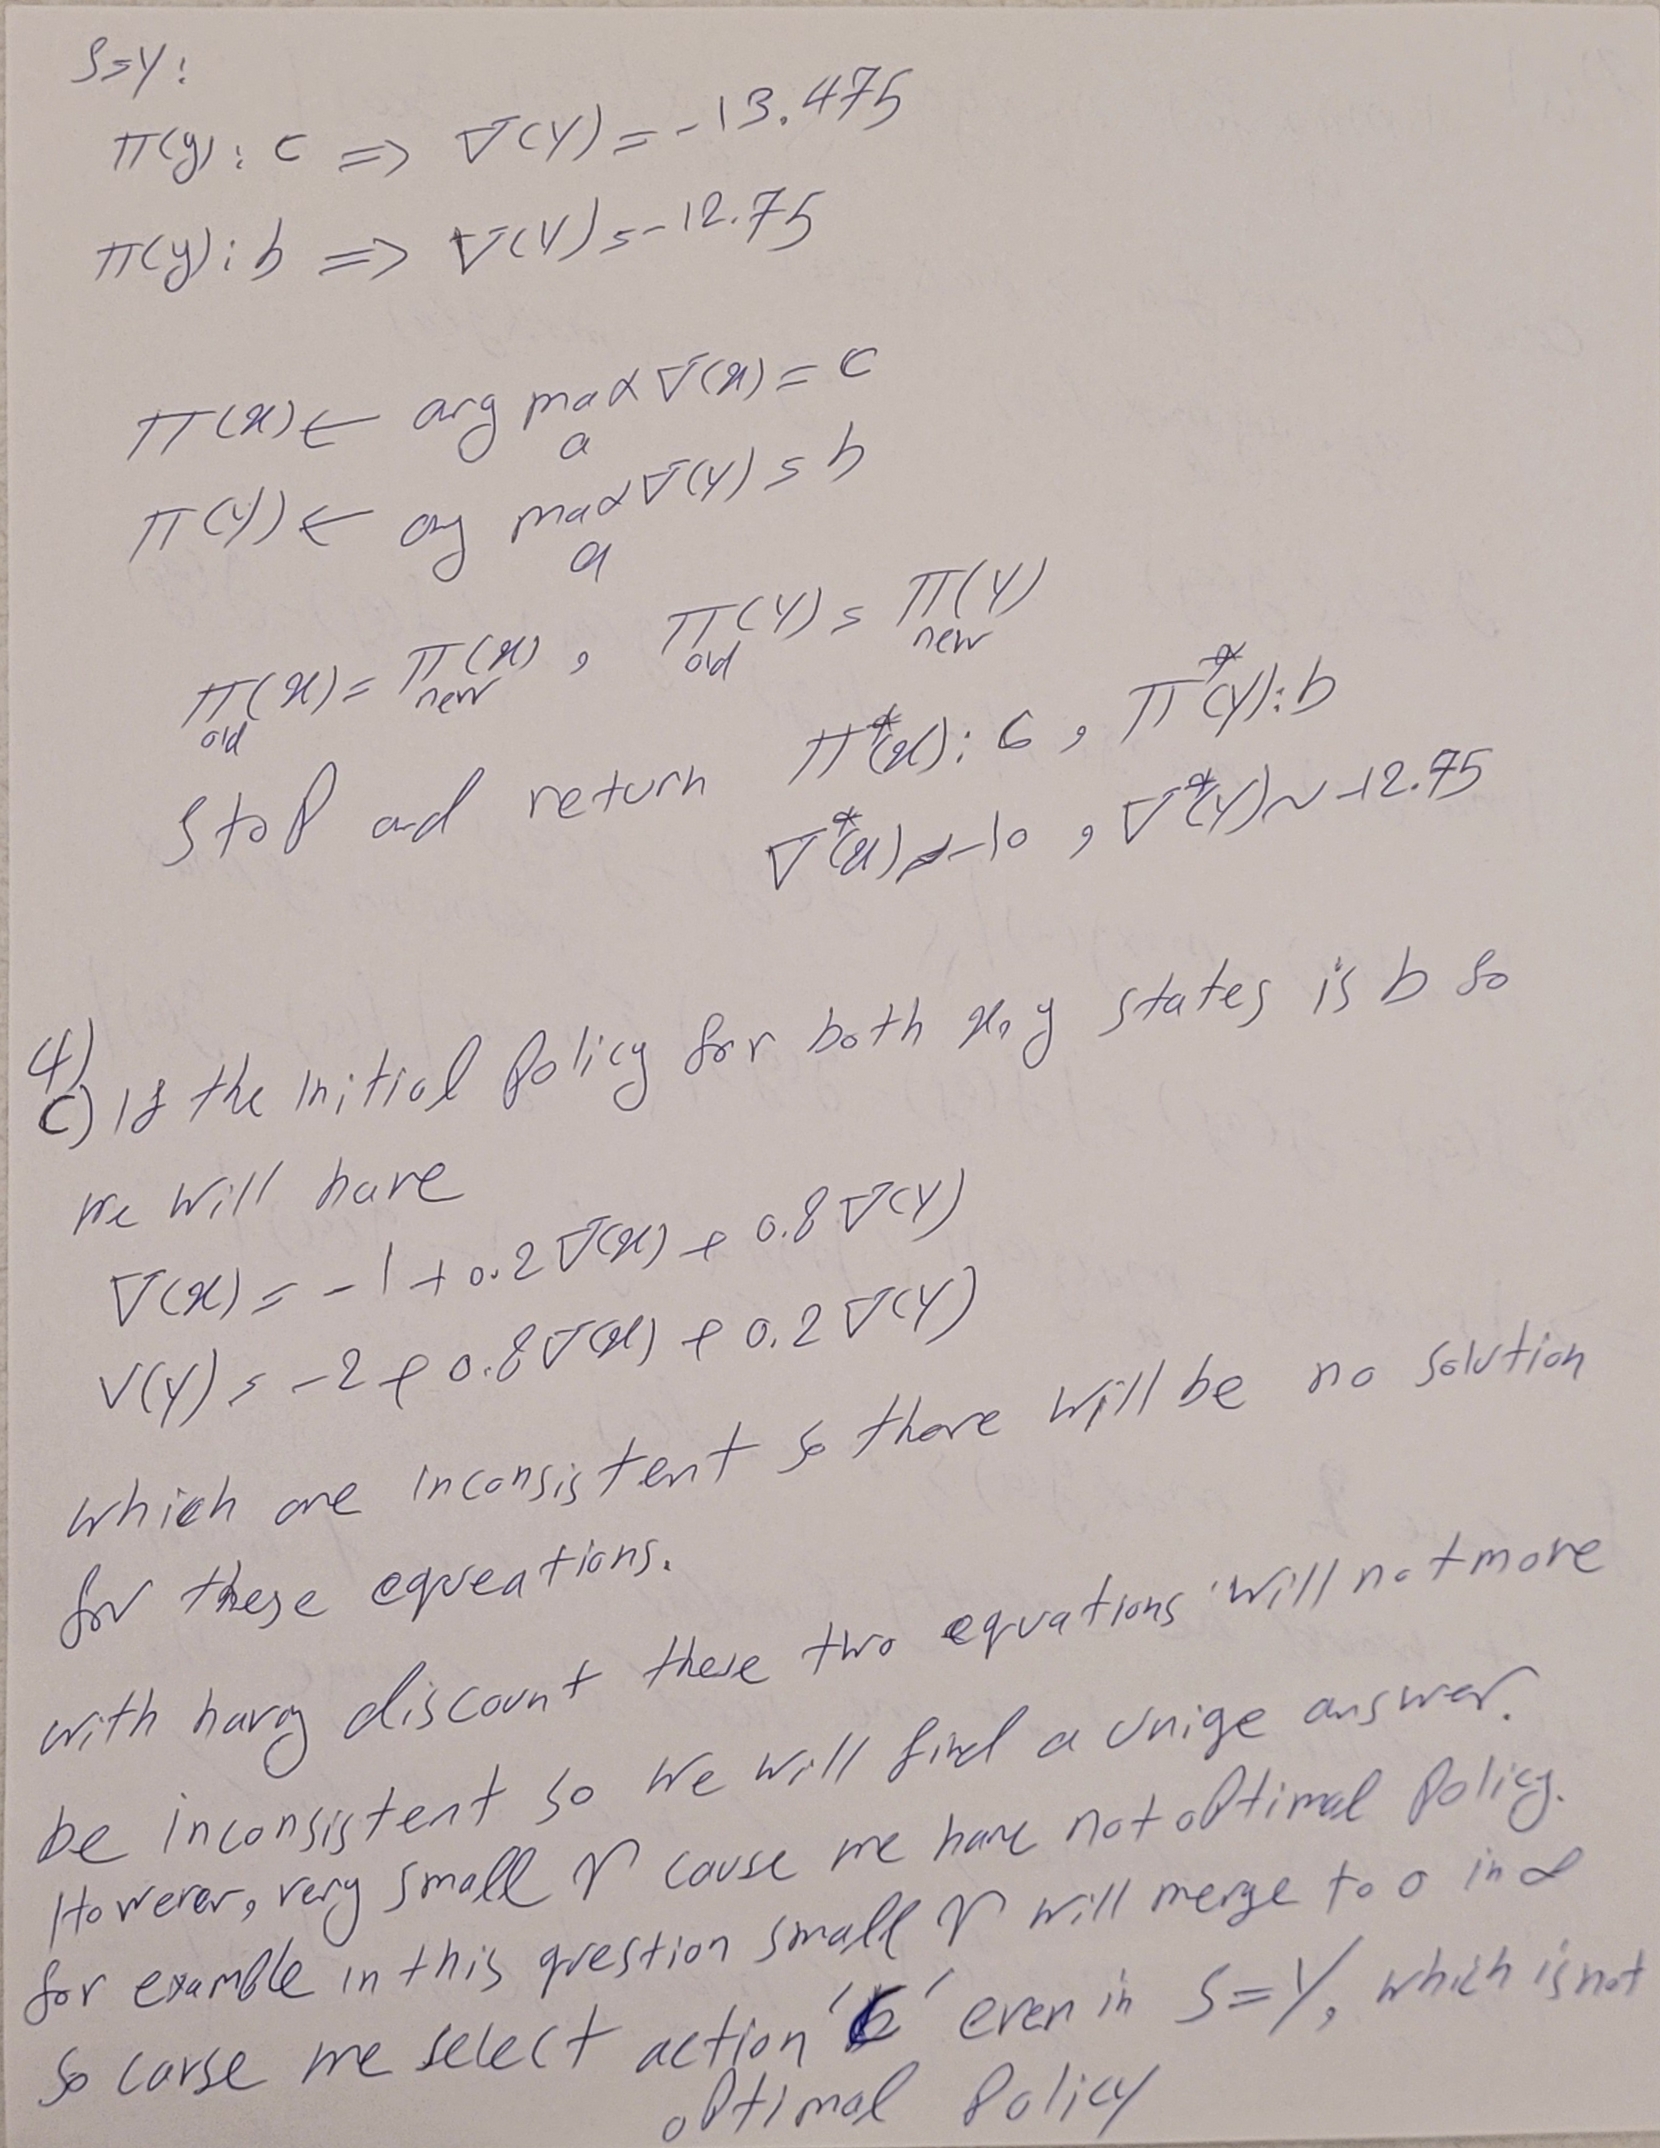 S=Y:
π(y): c => V(Y) = -13.475
π(y): b => V(Y) = -12.75
π(x) ← arg max V(x) = c
a
π(y) ← arg max V(Y) = b
a
π(x) = π(x) , π(Y) = π(Y)
old new old new
Stop and return π*(x): c , π*(Y): b
V*(x) = -10 , V*(Y) ~ -12.75
4)
c) If the initial policy for both x,y states is b so
we will have
V(x) = -1 + 0.2 V(x) + 0.8 V(Y)
V(Y) = -2 + 0.8 V(x) + 0.2 V(Y)
which are inconsistent so there will be no solution
for these equeations.
with havg discount these two equations will not more
be inconsistent so we will find a uniqe answer.
However, very small γ cause we have not optimal policy.
for example in this question small γ will merge to 0 in ∞
so carse we select action 'b' even in S=Y, which is not
optimal policy